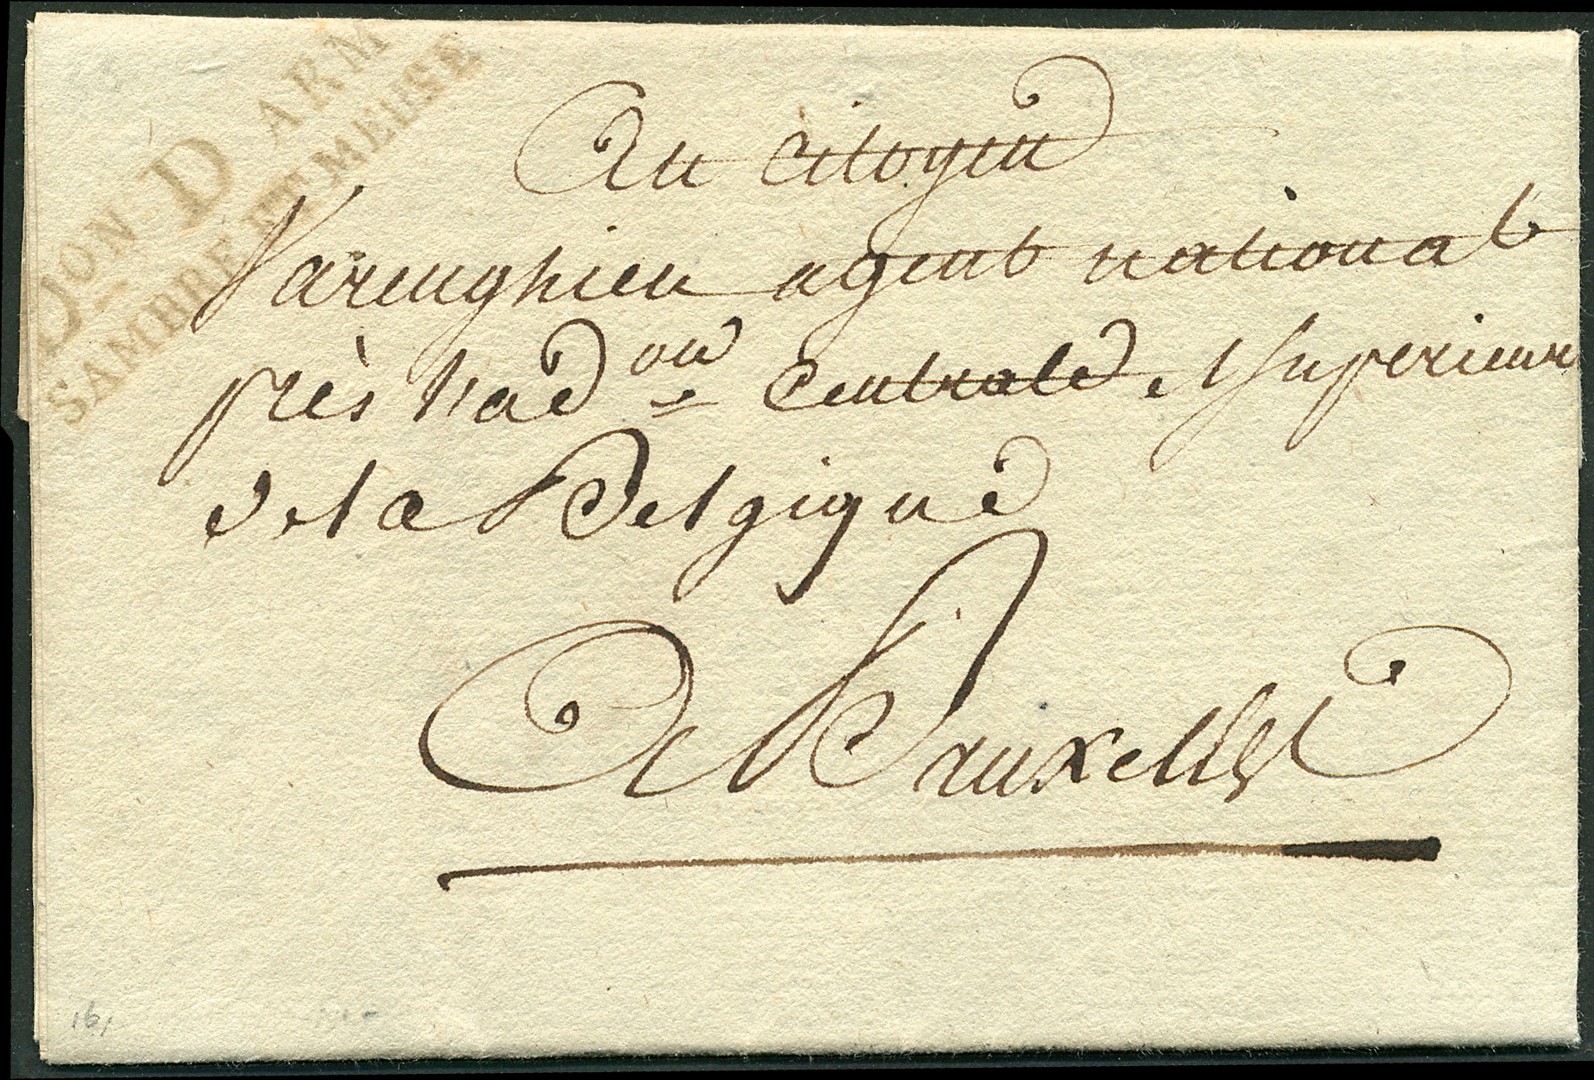 DON D ARM
SAMBRE ET MEUSE
Au citoyen
Varenghien agent national
près l'ad on centrale et superieure
de la Belgique
A Bruxelles
161